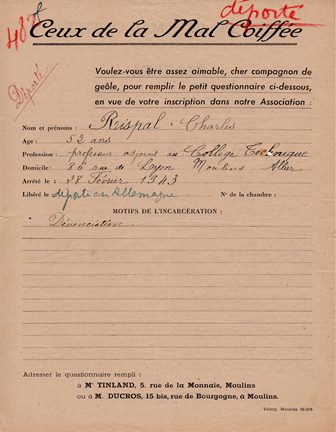 déporté
488
Ceux de la Mal Coiffée
Déporté
Voulez-vous être assez aimable, cher compagnon de
geôle, pour remplir le petit questionnaire ci-dessous,
en vue de votre inscription dans notre Association :
Nom et prénoms : Rispal - Charles
Age : 52 ans
Profession : professeur adjoint au Collège Technique
Domicile : 86 rue de Lyon Moulins Allier
Arrêté le : 28 Février 1943
Libéré le déporté en Allemagne N° de la chambre :
MOTIFS DE L'INCARCÉRATION :
Dénonciation
Adresser le questionnaire rempli :
à Mr TINLAND, 5, rue de la Monnaie, Moulins
ou à M. DUCROS, 15 bis, rue de Bourgogne, à Moulins.